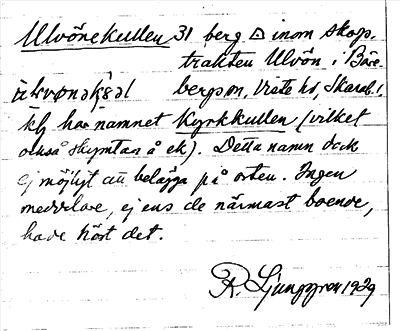 Ulvönekullen 31 berg △ inom skogs-
trakten Ulvön i Bäre-
bergs sn, Viste hd, Skarab. l.
kf har namnet Kyrkkullen (vilket
också skymtas å ek). Detta namn dock
ej möjligt att belägga på orten. Ingen
meddelare, ej ens de närmast boende,
hade hört det.
R. Ljunggren 1929